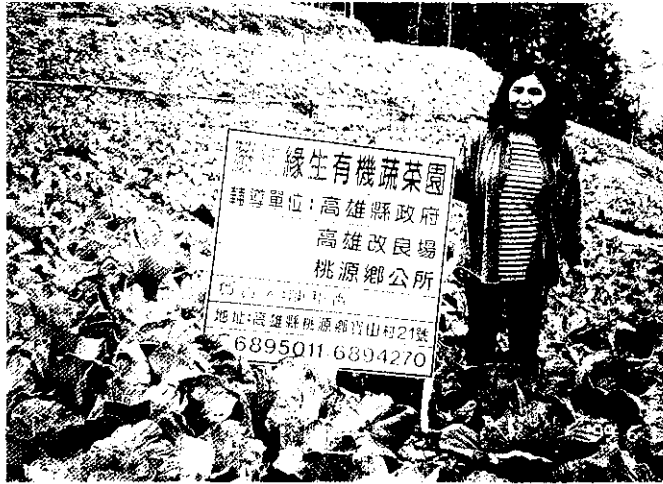 緣生有機蔬菜園
輔導單位:高雄縣政府
高雄改良場
桃源鄉公所
地址:高雄縣桃源鄉寶山村21號
6895011 6894270